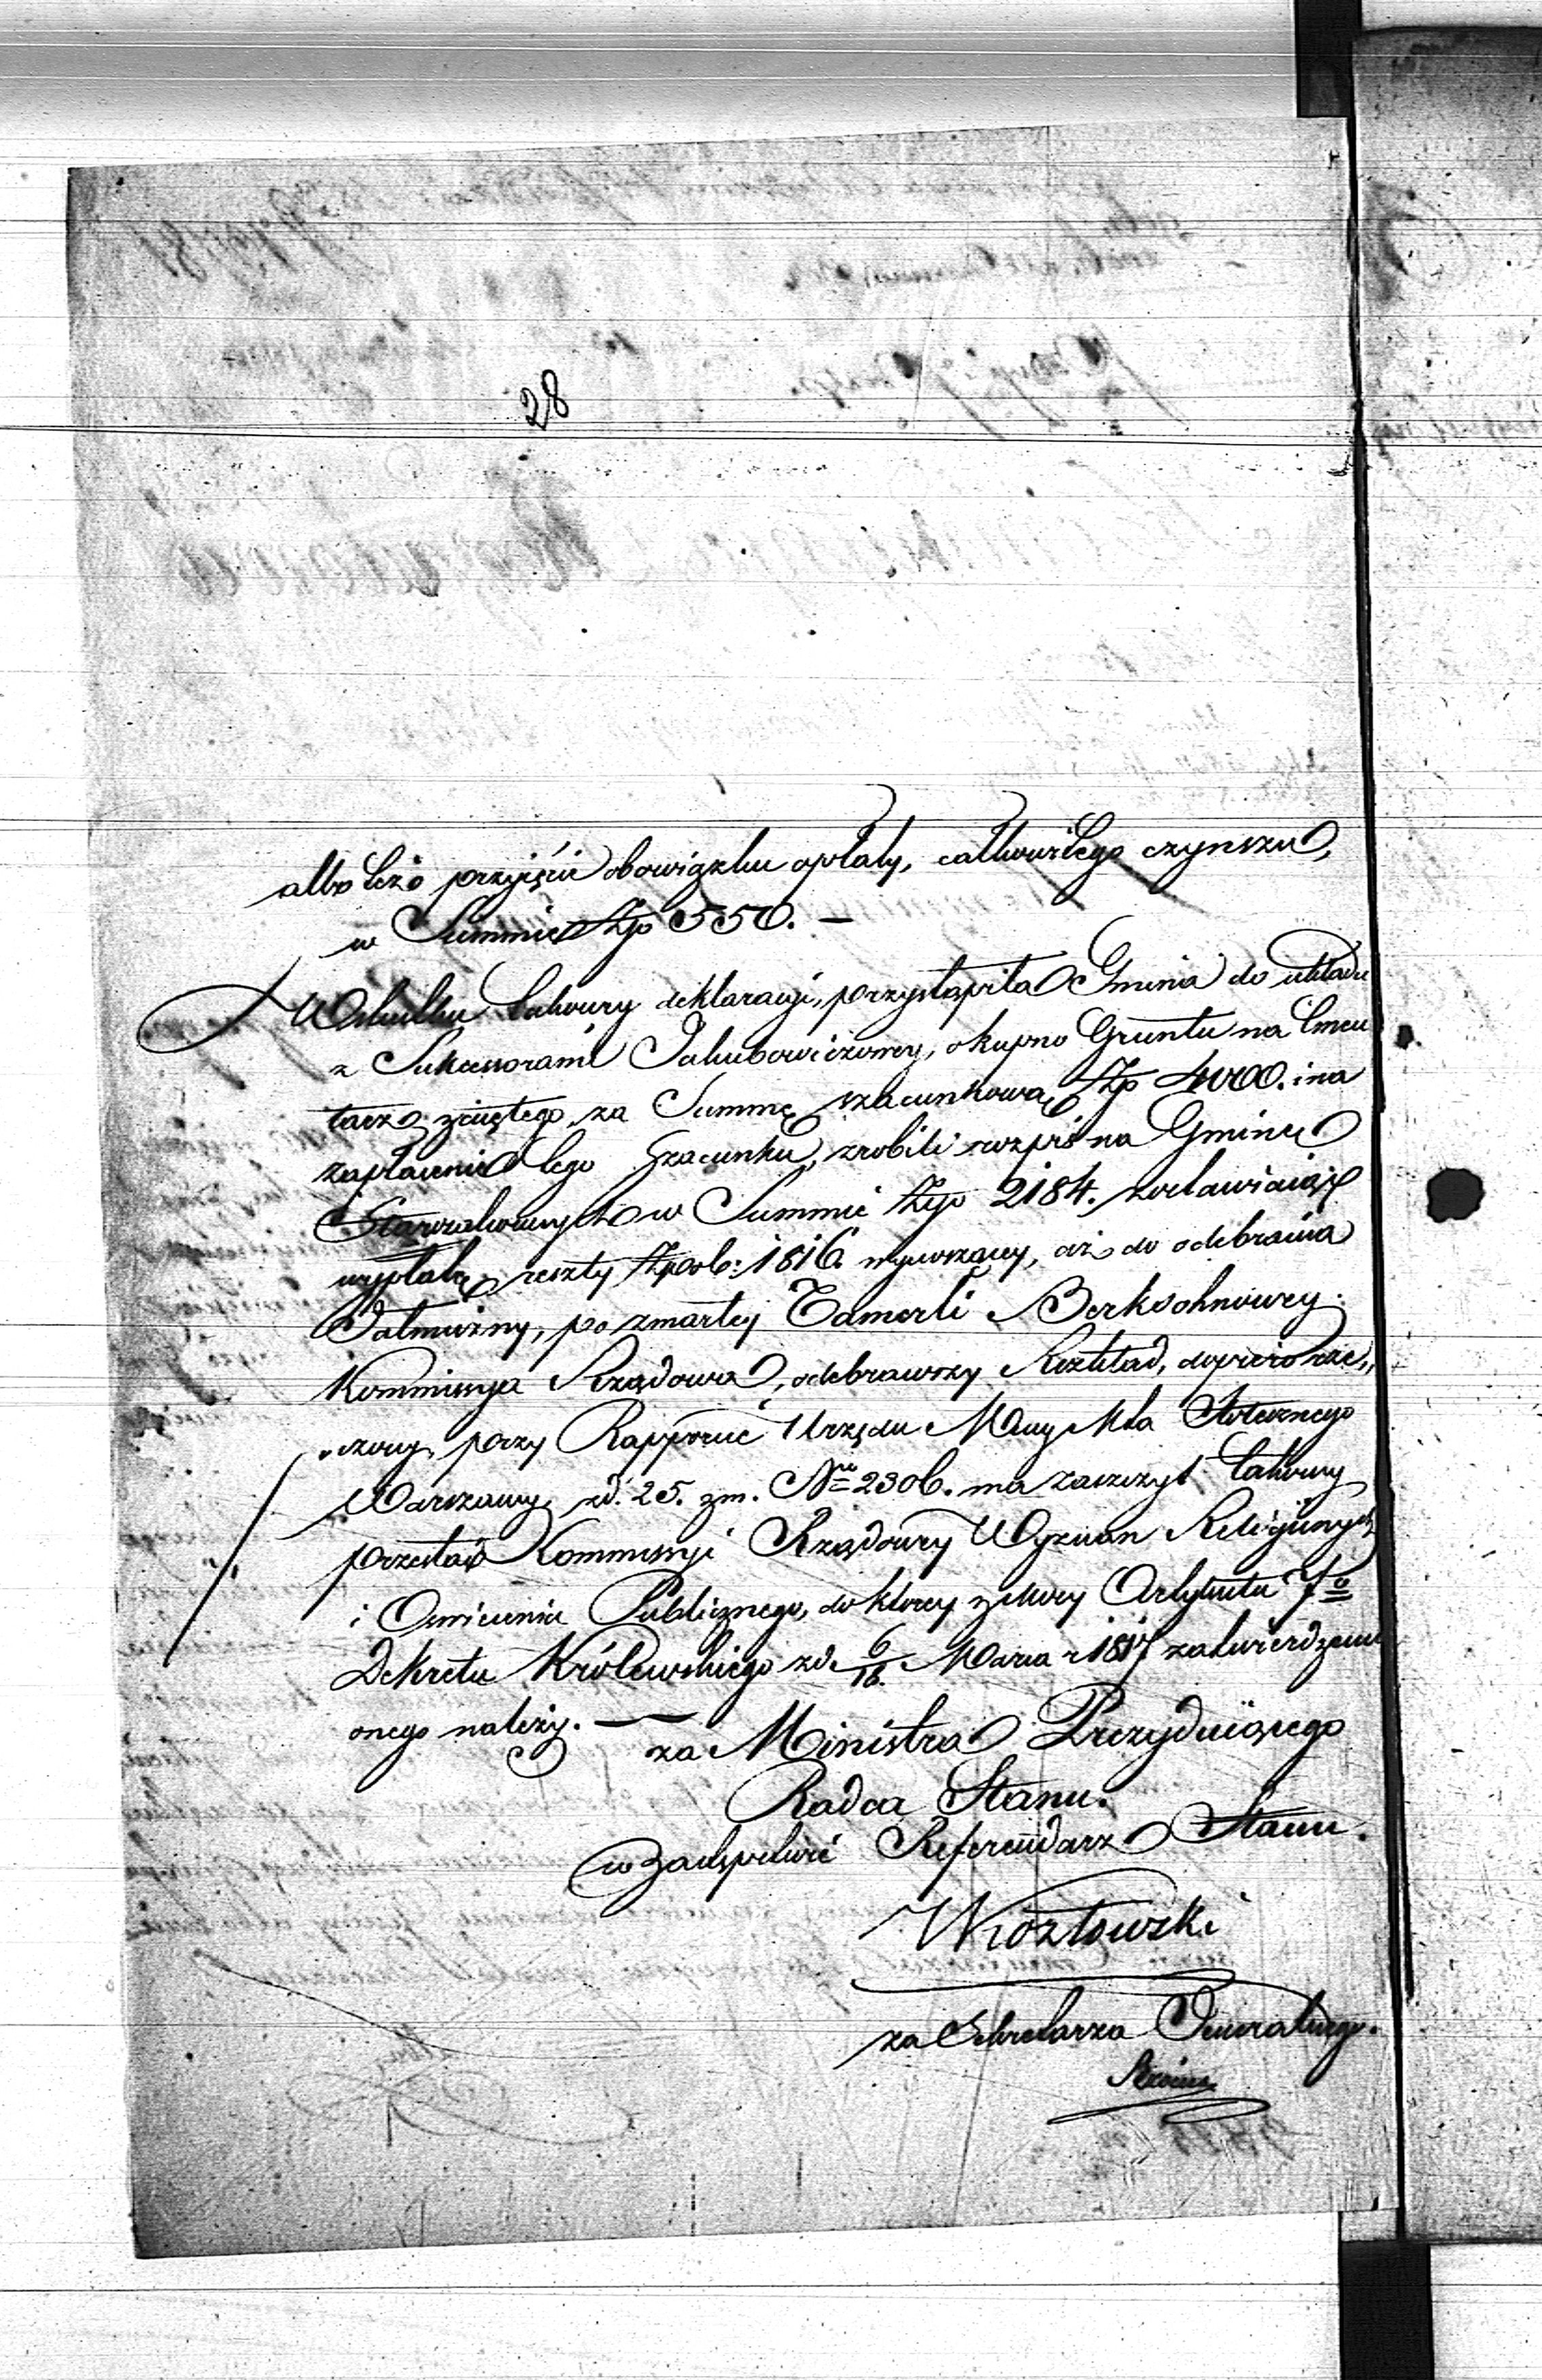 28
albo też przyjęcie obowiązku opłaty, całkowitego czynszu,
w Summie Złp 550. —
W skutku takowey deklaracyi, przystąpiła Gmina do układu
z Sukcessorami Jakubowiczowey, o kupno Gruntu na Cmen
tarz zajętego, za Summę szacunkową Złp 4000. i na
zapłacenie tego Szacunku, zrobili rozpis na Gminę
Starozakonnych w Summie Złp 2184. zostawiaiąc
wypłatę reszty Złpol: 1816 wynoszącey, aż do odebrania
Jałmużny, po zmarłey Tamerli Berksohnowey.
Kommissya Rządowa, odebrawszy Rozkład, dopiero rze„
„czony, przy Rapporcie Urzędu Mun Mta Stołecznego
Warszawy, z d. 25. z m. Nro 2306. ma zaszczyt takowy
przesłać Kommissyi Rządowey Wyznań Religijnych
i Oswiecenia Publicznego, do ktorey z mocy Artykułu 7o
Dekretu Królewskiego z d. 6/18. Marca r 1817 zatwierdzenie
onego należy. —
za Ministra Prezyduiącego
Radca Stanu.
w Zastępstwie Referendarz Stanu.
Kozłowski
za Sekretarza Generalnego.